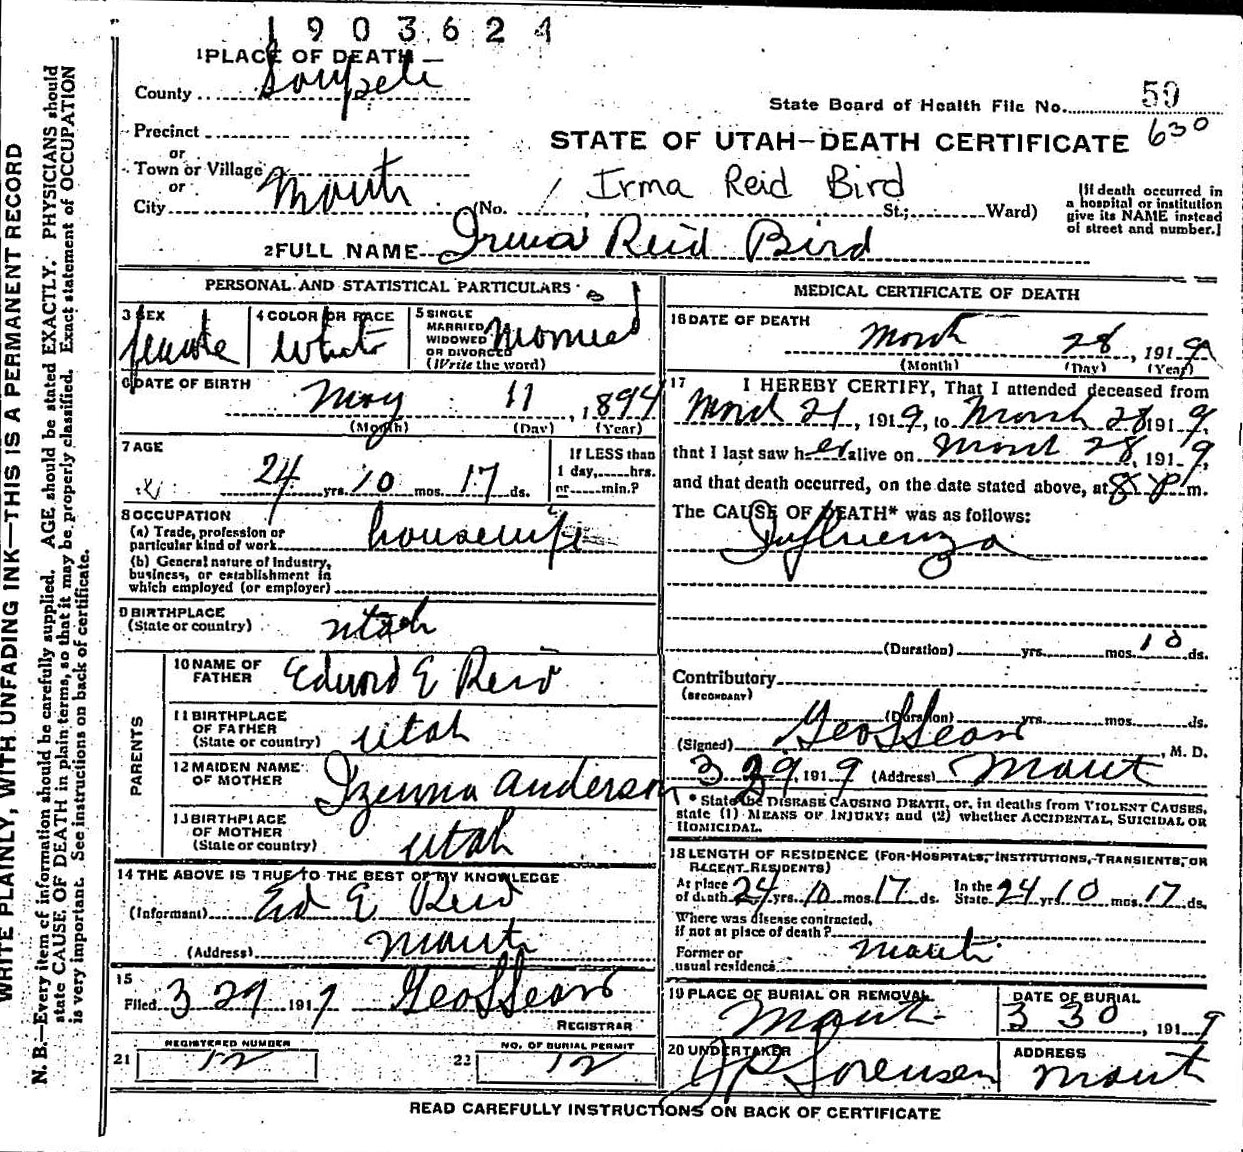 1903624
1 PLACE OF DEATH—
County Sanpete
State Board of Health File No. 59
630
Precinct
or
STATE OF UTAH—DEATH CERTIFICATE
Town or Village
or
City Manti (No. Irma Reid Bird St.; Ward)
(If death occurred in
a hospital or institution
give its NAME instead
of street and number.)
2 FULL NAME Irma Reid Bird
PERSONAL AND STATISTICAL PARTICULARS
3 SEX female
4 COLOR OR RACE White
5 SINGLE
MARRIED
WIDOWED
OR DIVORCED
(Write the word) Married
6 DATE OF BIRTH
May 11, 1894
(Month) (Day) (Year)
7 AGE
24 yrs. 10 mos. 17 ds.
If LESS than
1 day, hrs.
or min.?
8 OCCUPATION
(a) Trade, profession or
particular kind of work housewife
(b) General nature of Industry,
business, or establishment in
which employed (or employer)
9 BIRTHPLACE
(State or country) Utah
PARENTS
10 NAME OF
FATHER Edward E Reid
11 BIRTHPLACE
OF FATHER
(State or country) Utah
12 MAIDEN NAME
OF MOTHER Anderson
13 BIRTHPLACE
OF MOTHER
(State or country) Utah
14 THE ABOVE IS TRUE TO THE BEST OF MY KNOWLEDGE
(Informant) Ed E Reid
(Address) Manti
15
Filed 3 29 1919
REGISTRAR
REGISTERED NUMBER
21 12
NO. OF BURIAL PERMIT
22 12
MEDICAL CERTIFICATE OF DEATH
16 DATE OF DEATH
March 28, 1919
(Month) (Day) (Year)
17 I HEREBY CERTIFY, That I attended deceased from
March 21, 1919, to March 28 1919,
that I last saw h er alive on March 28, 1919,
and that death occurred, on the date stated above, at 8 P m.
The CAUSE OF DEATH* was as follows:
Influenza
(Duration) yrs. mos. 10 ds.
Contributory
(SECONDARY)
(Duration) yrs. mos. ds.
(Signed) , M. D.
3 29, 1919 (Address) Manti
* State the DISEASE CAUSING DEATH, or, in deaths from VIOLENT CAUSES,
state (1) MEANS OF INJURY; and (2) whether ACCIDENTAL, SUICIDAL OR
HOMICIDAL.
18 LENGTH OF RESIDENCE (FOR HOSPITALS, INSTITUTIONS, TRANSIENTS, OR
RECENT RESIDENTS)
At place
of death 24 yrs. 10 mos. 17 ds. In the
State 24 yr 10 mos. 17 ds.
Where was disease contracted,
if not at place of death?
Former or
usual residence Manti
19 PLACE OF BURIAL OR REMOVAL
Manti
DATE OF BURIAL
3 30, 1919
20 UNDERTAKER
JP Sorensen
ADDRESS
Manti
READ CAREFULLY INSTRUCTIONS ON BACK OF CERTIFICATE
WRITE PLAINLY, WITH UNFADING INK—THIS IS A PERMANENT RECORD
N. B.—Every item of information should be carefully supplied. AGE should be stated EXACTLY. PHYSICIANS should
state CAUSE OF DEATH in plain terms, so that it may be properly classified. Exact statement of OCCUPATION
is very important. See instructions on back of certificate.